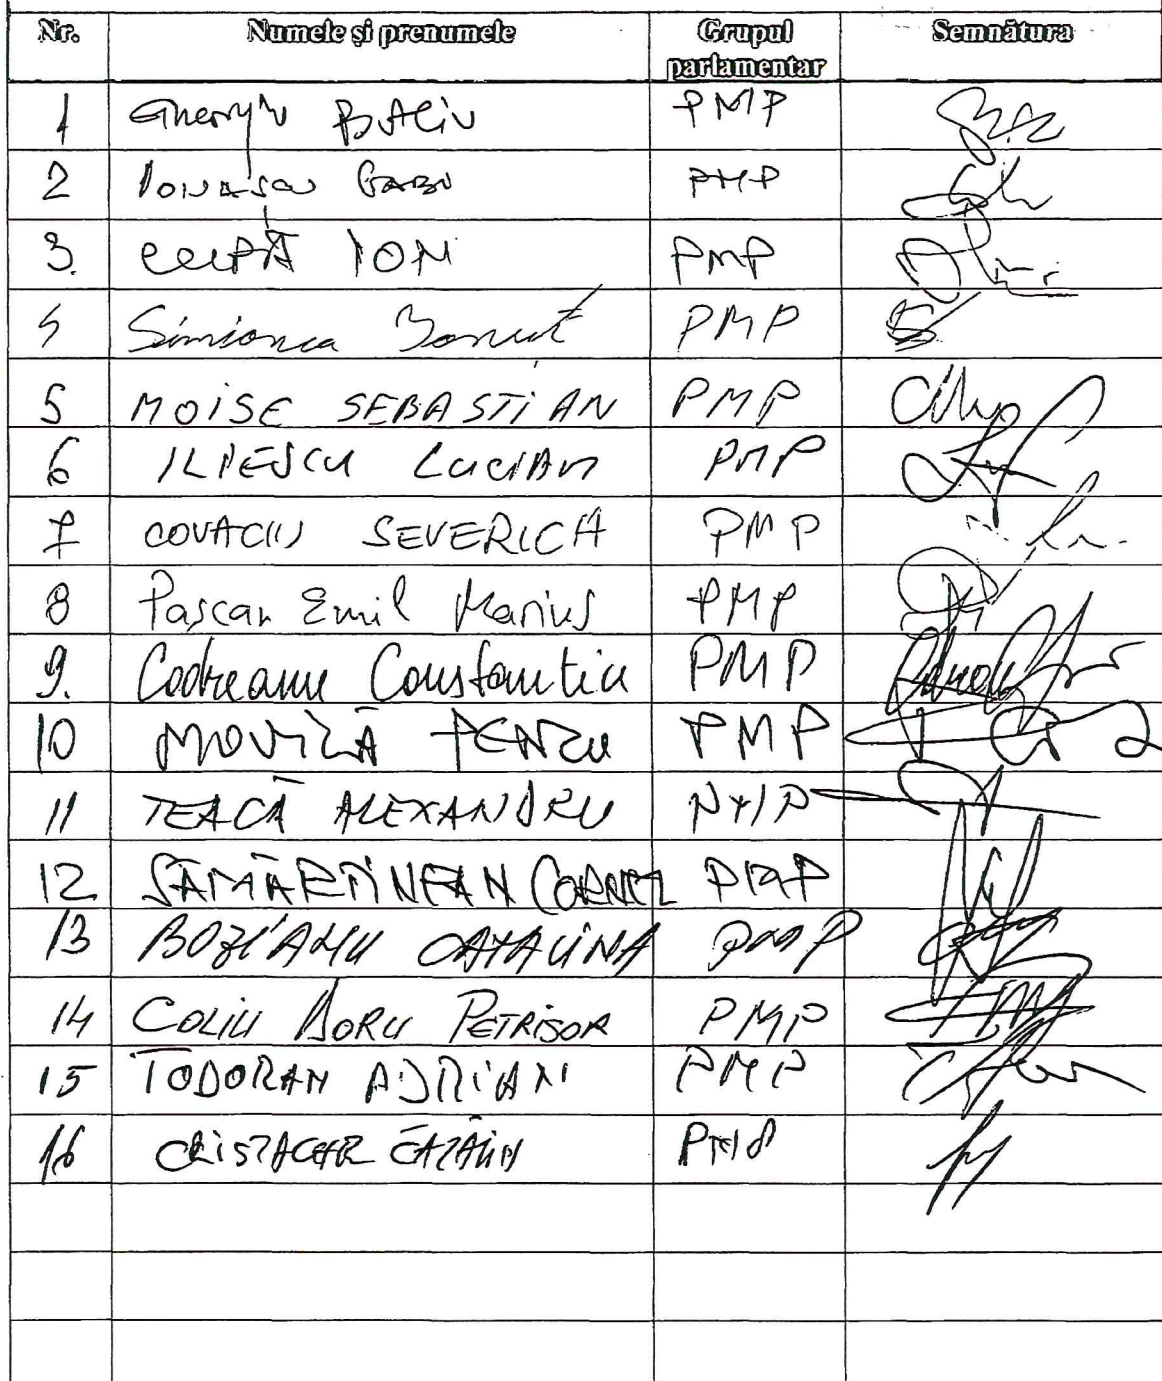 Nr. Numele și prenumele Grupul parlamentar Semnătura
1 Gheorghe Baciu PMP
2 Ionașcu Gabi PMP
3. Cupă Ion PMP
4 Simionca Ionuț PMP
5 MOISE SEBASTIAN PMP
6 ILIESCU LUCIAN PMP
7 COVACIU SEVERICA PMP
8 Pașcan Emil Marius PMP
9. Codreanu Constantin PMP
10 MOVILĂ PETRU PMP
11 TEACĂ ALEXANDRU PMP
12 SĂMĂRTINEAN CORNEL PMP
13 BOZIANU CATALINA PMP
14 COLIU DORU PETRIȘOR PMP
15 TODORAN ADRIAN PMP
16 CRISTACHE CĂTĂLIN PMP